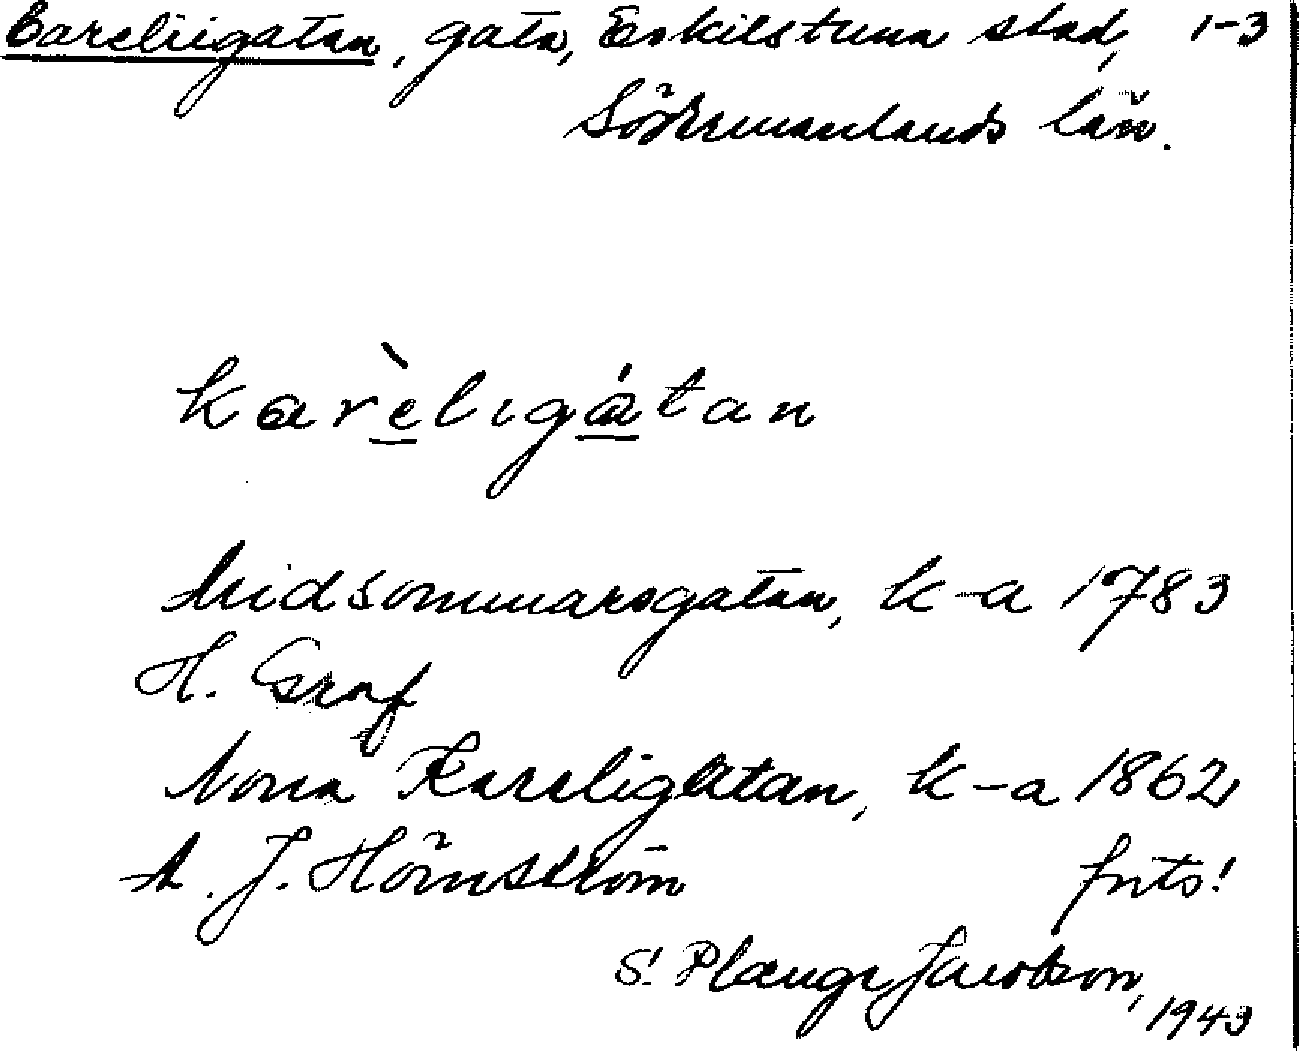 Careliigatan, gata, Eskilstuna stad, 1-3
Södermanlands län.
karèligátan
Midsommarsgatan, k-a 1783
H. Graf
Norra Kareligatan, k-a 1862
A. J. Hörnström forts!
S. Plænge Jacobson,
1943